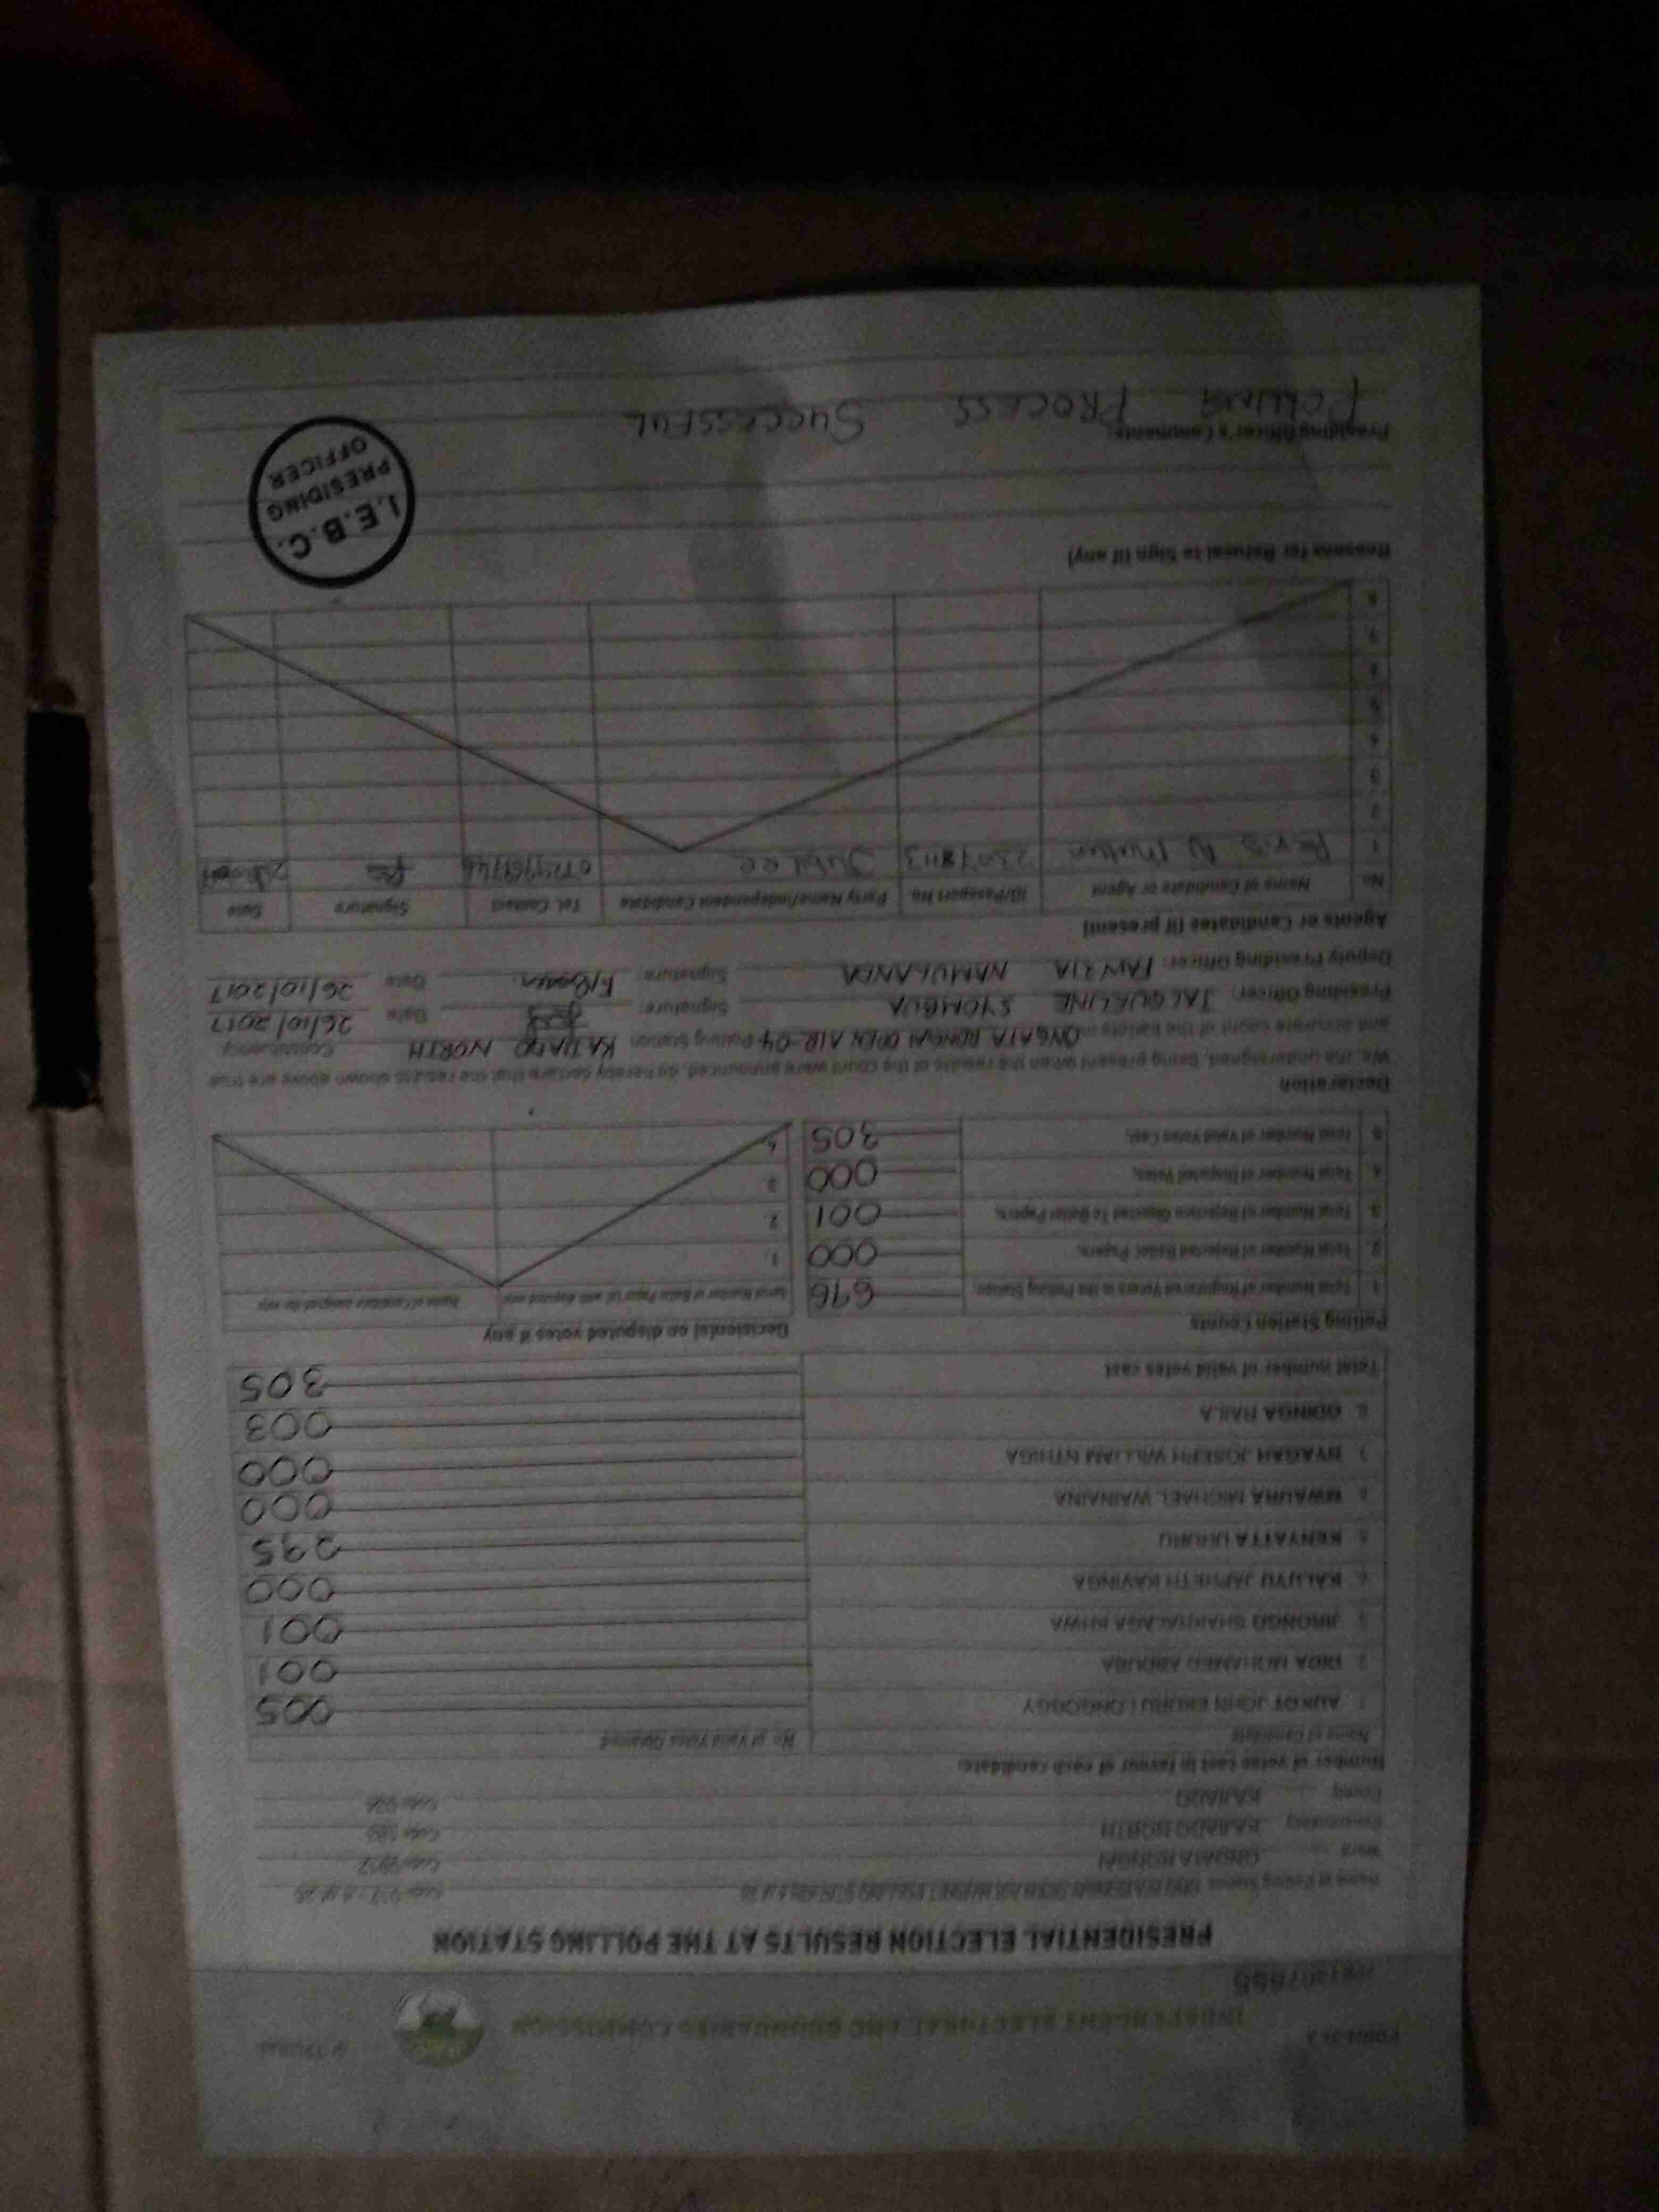 FORM 34A
INDEPENDENT ELECTORAL AND BOUNDARIES COMMISSION
PRESIDENTIAL ELECTION RESULTS AT THE POLLING STATION
Name of Polling Station
Ward ONGATA RONGAI
Constituency KAJIADO NORTH
County KAJIADO
Number of votes cast in favour of each candidate:
Name of Candidate No. of Valid Votes Obtained
1. AUKOT JOHN EKURU LONGOGGY 005
2. DIDA MOHAMED ABDUBA 001
3. JIRONGO SHAKHALAGA KHWA 001
4. KALUYU JAPHETH KAVINGA 000
5. KENYATTA UHURU 295
6. MWAURA MICHAEL WAINAINA 000
7. NYAGAH JOSEPH WILLIAM NTHIGA 000
8. ODINGA RAILA 003
Total number of valid votes cast 305
Polling Station Counts
1. Total Number of Registered Voters in the Polling Station 696
2. Total Number of Rejected Ballot Papers. 000
3. Total Number of Rejection Objected To Ballot Papers. 001
4. Total Number of Disputed Votes. 000
5. Total Number of Valid Votes Cast. 305
Decision(s) on disputed votes if any
Serial Number of Ballot Paper (s) with disputed vote Name of Candidate assigned the vote
1.
2.
3.
4.
Declaration
We, the undersigned, being present when the results of the count were announced, do hereby declare that the results shown above are true
and accurate count of the ballots in ONGATA RONGAI OPEN AIR-04 Polling Station KAJIADO NORTH Constituency
Presiding Officer: JACQUELINE SYOMBUA Signature: Date 26/10/2017
Deputy Presiding Officer: FAWZIA NAMULANDA Signature: Date 26/10/2017
Agents or Candidates (if present)
No. Name of Candidate or Agent ID/Passport No. Party Name/Independent Candidate Tel. Contact Signature Date
1 Jubilee
2
3
4
5
6
7
8
Reasons for Refusal to Sign (if any)
I.E.B.C.
PRESIDING
OFFICER
Presiding Officer's Comments:
POLLING PROCESS SUCCESSFUL